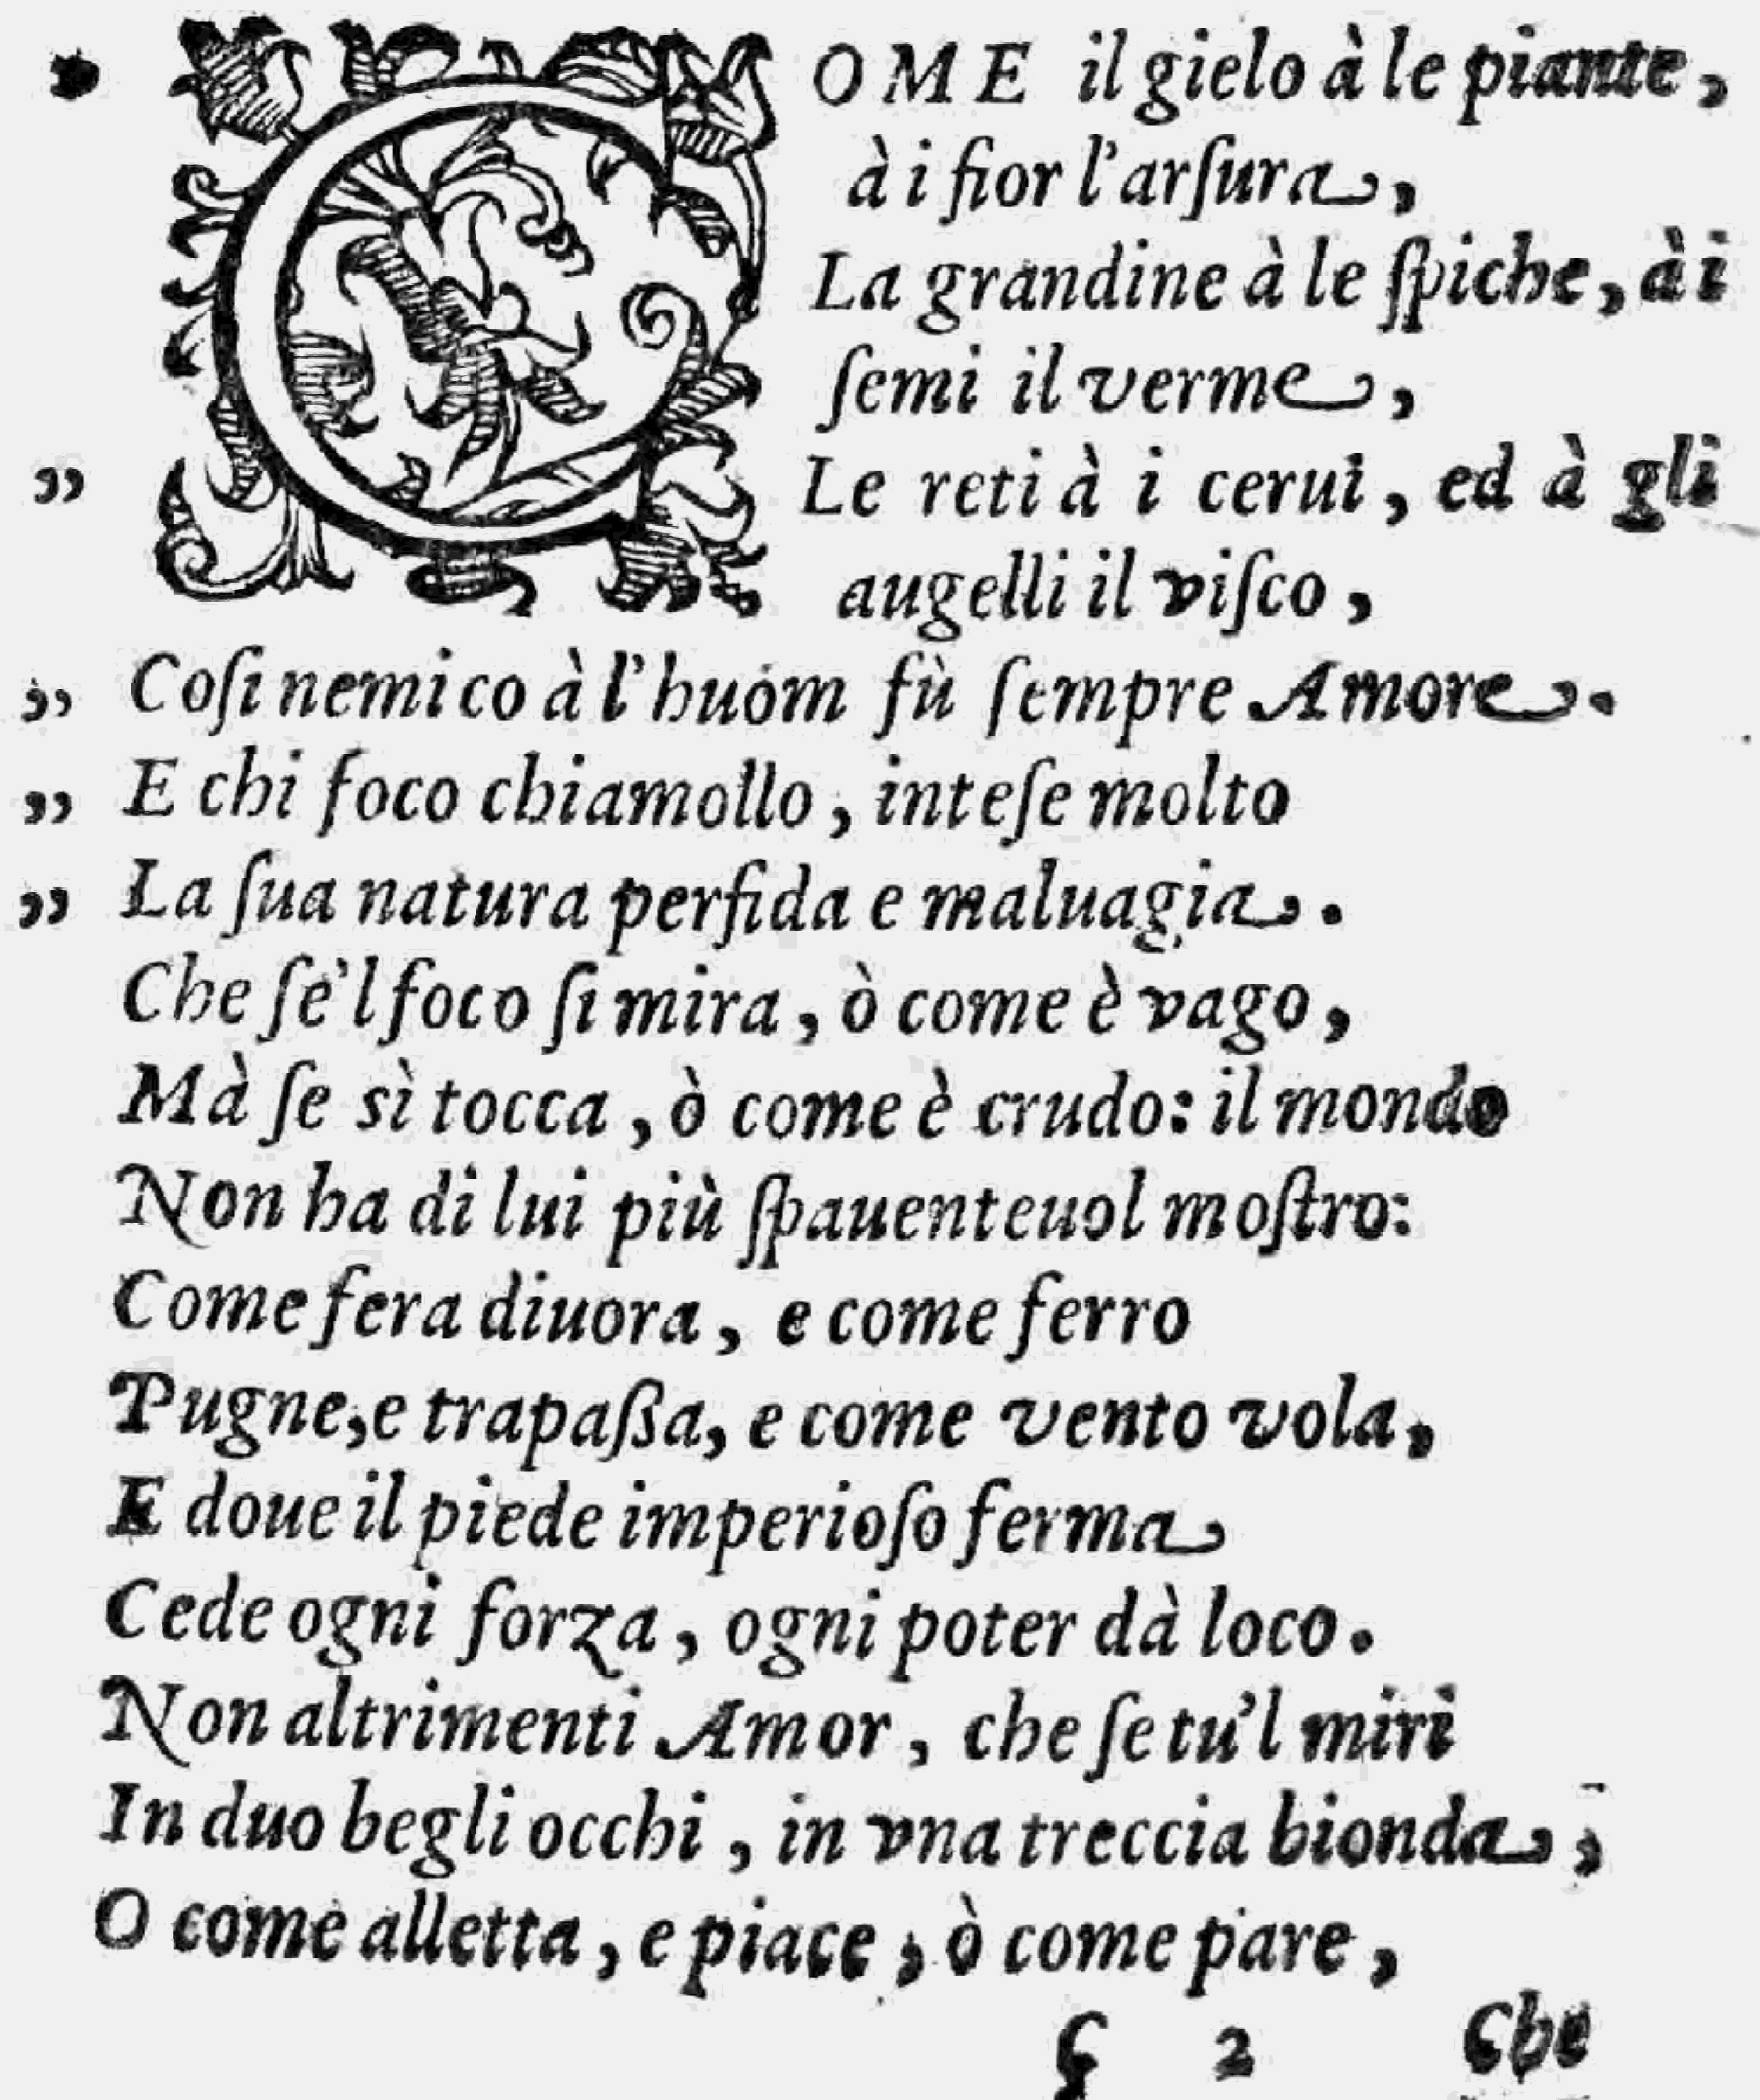 COME il gielo à le piante,
à i fior l'arſura,
La grandine à le ſpiche, à i
ſemi il verme,
„ Le reti à i cerui, ed à gli
augelli il viſco,
„ Coſi nemico à l'huom fù ſempre Amore.
„ E chi foco chiamollo, inteſe molto
„ La ſua natura perfida e maluagia.
Che ſe'l foco ſi mira, ò come è vago,
Mà ſe sì tocca, ò come è crudo: il mondo
Non ha di lui più ſpauenteuol moſtro:
Come fera diuora, e come ferro
Pugne, e trapaſſa, e come vento vola,
E doue il piede imperioſo ferma
Cede ogni forza, ogni poter dà loco.
Non altrimenti Amor, che ſe tu'l miri
In duo begli occhi, in vna treccia bionda,
O come alletta, e piace, ò come pare,
2 Che